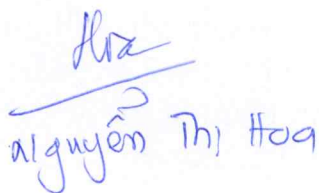 Hoa
Nguyễn Thị Hoa